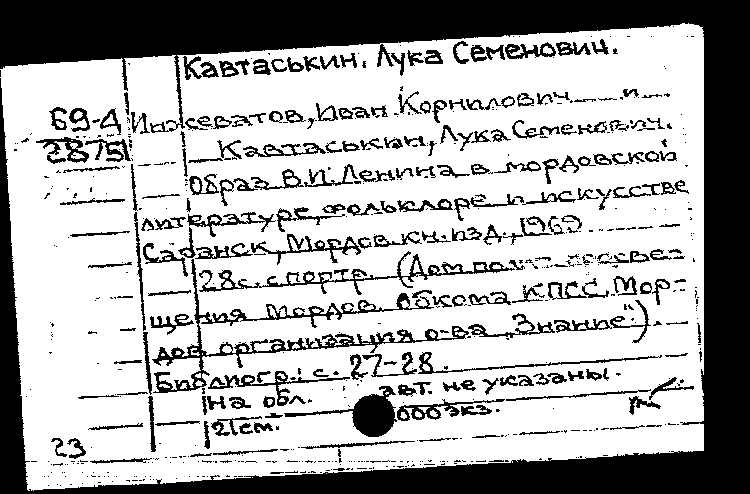 Кавтаськин, Лука Семенович.
69-4 Инжеватов, Иван Корнилович и
2875 Кавтаськин, Лука Семенович.
Образ В.И. Ленина в мордовской
литературе, фольклоре и искусстве
Саранск, Мордов. кн. изд., 1969
28с. с портр. (Дом полит. просве-
щения Мордов. обкома КПСС. Мор-
дов. организация о-ва „Знание").
Библиогр.: с. 27-28.
На обл. авт. не указаны.
21см. 000экз.
23